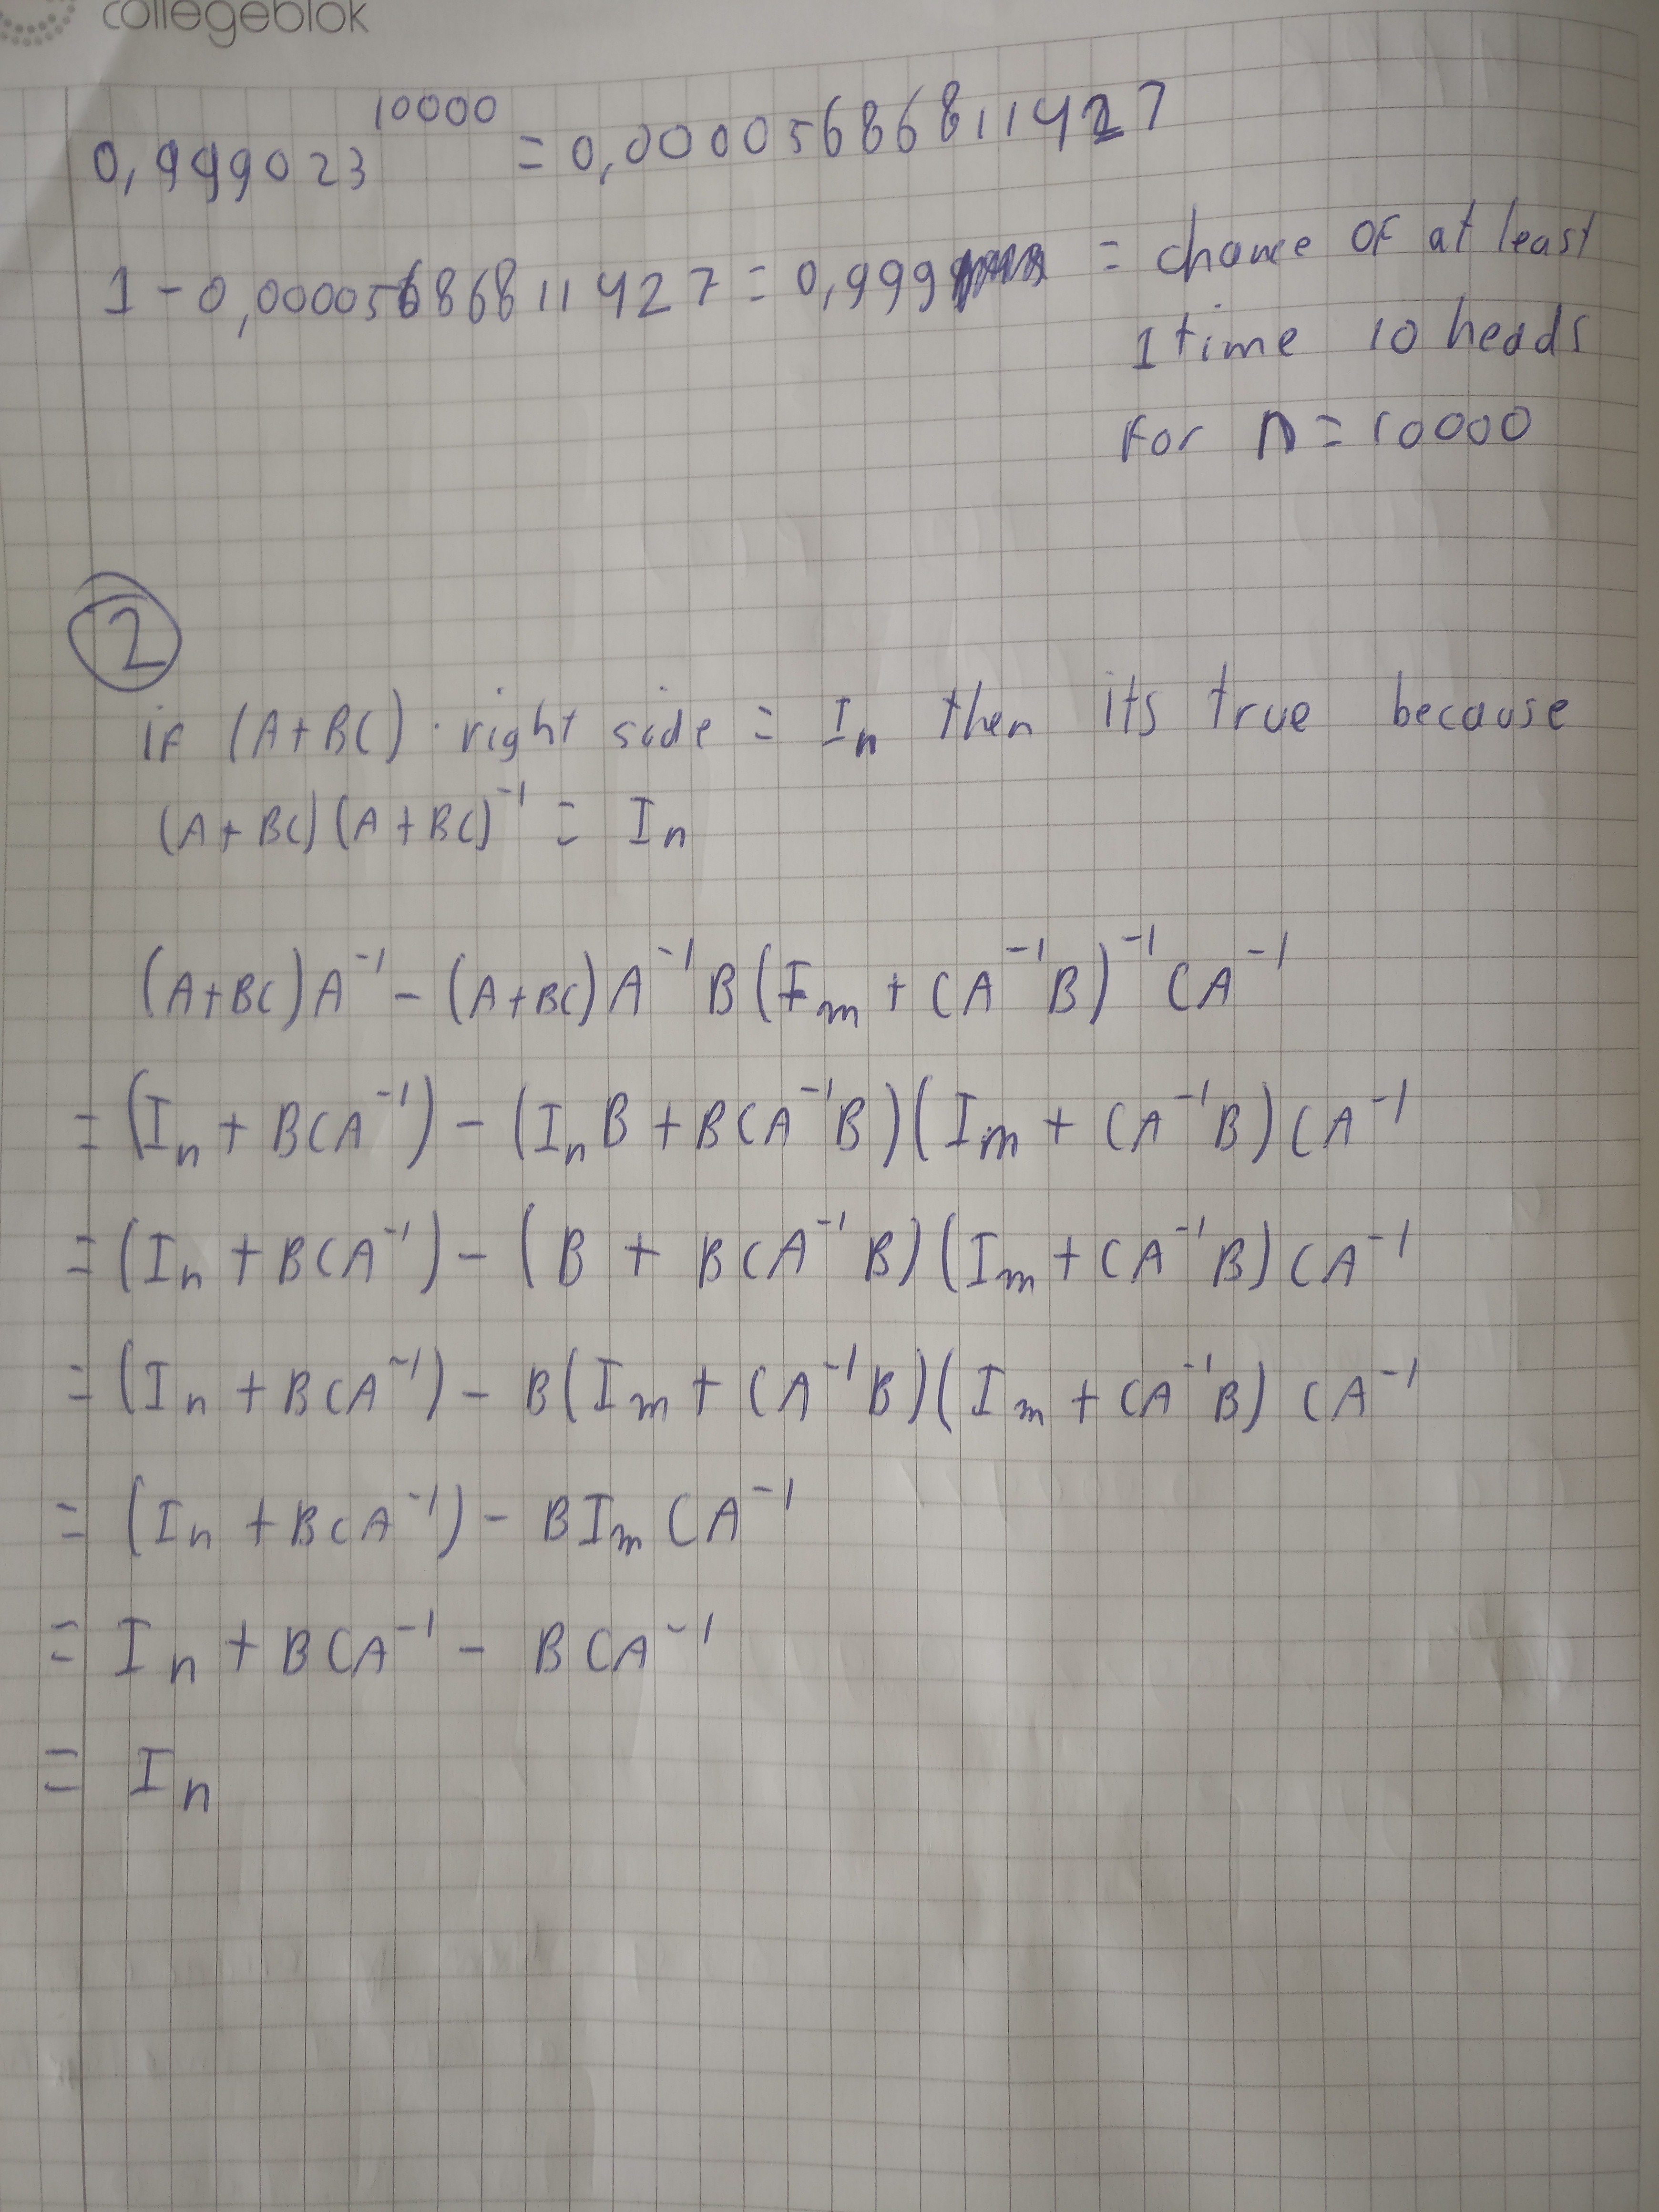 collegeblok
0,999023^10000 = 0,00005686811427
1 - 0,00005686811427 = 0,999 = chance of at least
1 time 10 heads
for n = 10000
2
if (A+BC) · right side = I_n then its true because
(A+BC)(A+BC)^-1 = I_n
(A+BC)A^-1 - (A+BC)A^-1B(I_m + CA^-1B)^-1 CA^-1
= (I_n + BCA^-1) - (I_nB + BCA^-1B)(I_m + CA^-1B)CA^-1
= (I_n + BCA^-1) - (B + BCA^-1B)(I_m + CA^-1B)CA^-1
= (I_n + BCA^-1) - B(I_m + CA^-1B)(I_m + CA^-1B)CA^-1
= (I_n + BCA^-1) - BI_mCA^-1
= I_n + BCA^-1 - BCA^-1
= I_n